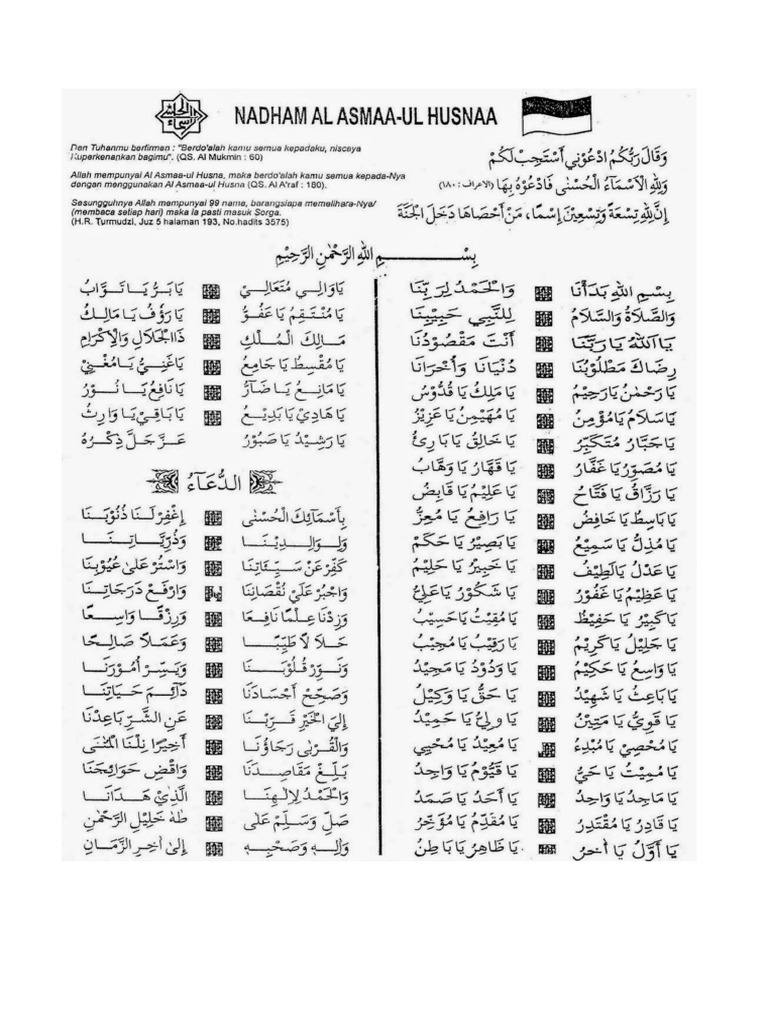 NADHAM AL ASMAA-UL HUSNAA
Dan Tuhanmu berfirman : "Berdo'alah kamu semua kepadaku, niscaya
Kuperkenankan bagimu". (QS. Al Mukmin : 60)
Allah mempunyai Al Asmaa-ul Husna, maka berdo'alah kamu semua kepada-Nya
dengan menggunakan Al Asmaa-ul Husna (QS. Al A'raf : 180).
Sesungguhnya Allah mempunyai 99 nama, barangsiapa memelihara-Nya/
(membaca setiap hari) maka ia pasti masuk Sorga.
(H.R. Turmudzi, Juz 5 halaman 193, No.hadits 3575)
وَقَالَ رَبُّكُمُ ادْعُوْنِي أَسْتَجِبْ لَكُمْ
وَلِلهِ الْأَسْمَاءُ الْحُسْنَى فَادْعُوْهُ بِهَا (الاعراف : ١٨٠)
إِنَّ لِلهِ تِسْعَةً وَتِسْعِيْنَ إِسْمًا، مَنْ أَحْصَاهَا دَخَلَ الْجَنَّةَ
بِسْمِ اللهِ الرَّحْمٰنِ الرَّحِيْمِ
بِسْمِ اللهِ بَدَأْنَا وَالْحَمْدُ لِرَبِّنَا
وَالصَّلَاةُ وَالسَّلَامُ لِلنَّبِي حَبِيْبِنَا
يَا اَللهُ يَا رَبَّنَا أَنْتَ مَقْصُوْدُنَا
رِضَاكَ مَطْلُوْبُنَا دُنْيَانَا وَأُخْرَانَا
يَا رَحْمٰنُ يَا رَحِيْمُ يَا مَلِكُ يَا قُدُّوْسُ
يَا سَلَامُ يَا مُؤْمِنُ يَا مُهَيْمِنُ يَا عَزِيْزُ
يَا جَبَّارُ مُتَكَبِّرُ يَا خَالِقُ يَا بَارِئُ
يَا مُصَوِّرُ يَا غَفَّارُ يَا قَهَّارُ يَا وَهَّابُ
يَا رَزَّاقُ يَا فَتَّاحُ يَا عَلِيْمُ يَا قَابِضُ
يَا بَاسِطُ يَا خَافِضُ يَا رَافِعُ يَا مُعِزُّ
يَا مُذِلُّ يَا سَمِيْعُ يَا بَصِيْرُ يَا حَكَمُ
يَا عَدْلُ يَا لَطِيْفُ يَا خَبِيْرُ يَا حَلِيْمُ
يَا عَظِيْمُ يَا غَفُوْرُ يَا شَكُوْرُ يَا عَلِيُّ
يَا كَبِيْرُ يَا حَفِيْظُ يَا مُقِيْتُ يَا حَسِيْبُ
يَا جَلِيْلُ يَا كَرِيْمُ يَا رَقِيْبُ يَا مُجِيْبُ
يَا وَاسِعُ يَا حَكِيْمُ يَا وَدُوْدُ يَا مَجِيْدُ
يَا بَاعِثُ يَا شَهِيْدُ يَا حَقُّ يَا وَكِيْلُ
يَا قَوِيُّ يَا مَتِيْنُ يَا وَلِيُّ يَا حَمِيْدُ
يَا مُحْصِيْ يَا مُبْدِءُ يَا مُعِيْدُ يَا مُحْيِي
يَا مُمِيْتُ يَا حَيُّ يَا قَيُّوْمُ يَا وَاحِدُ
يَا مَاجِدُ يَا وَاحِدُ يَا أَحَدُ يَا صَمَدُ
يَا قَادِرُ يَا مُقْتَدِرُ يَا مُقَدِّمُ يَا مُؤَخِّرُ
يَا أَوَّلُ يَا أٰخِرُ يَا ظَاهِرُ يَا بَاطِنُ
يَا وَالِي مُتَعَالِيْ يَا بَرُّ يَا تَوَّابُ
يَا مُنْتَقِمُ يَا عَفُوُّ يَا رَؤُفُ يَا مَالِكُ
مَالِكَ الْمُلْكِ ذَا الْجَلَالِ وَالْإِكْرَامِ
يَا مُقْسِطُ يَا جَامِعُ يَا غَنِيُّ يَا مُغْنِيْ
يَا مَانِعُ يَا ضَآرُّ يَا نَافِعُ يَا نُوْرُ
يَا هَادِيْ يَا بَدِيْعُ يَا بَاقِيْ يَا وَارِثُ
يَا رَشِيْدُ يَا صَبُوْرُ عَزَّ جَلَّ ذِكْرُهُ
الدُّعَآءُ
بِأَسْمَائِكَ الْحُسْنٰى إِغْفِرْ لَنَا ذُنُوْبَنَا
وَلِوَالِدِيْنَا وَذُرِّيَّاتِنَا
كَفِّرْ عَنْ سَيِّئَاتِنَا وَاسْتُرْ عَلَى عُيُوْبِنَا
وَاجْبُرْ عَلَى نُقْصَانِنَا وَارْفَعْ دَرَجَاتِنَا
وَزِدْنَا عِلْمًا نَافِعَا وَرِزْقًا وَاسِعًا
حَلَالًا طَيِّبًا وَعَمَلًا صَالِحًا
وَنَوِّرْ قُلُوْبَنَا وَيَسِّرْ أُمُوْرَنَا
وَصَحِّحْ أَجْسَادَنَا دَآئِمَ حَيَاتِنَا
إِلَى الْخَيْرِ قَرِّبْنَا عَنِ الشَّرِّ بَاعِدْنَا
وَالْقُرْبٰى رَجَاؤُنَا أَخِيْرًا نِلْنَا الْمُنٰى
بَلِّغْ مَقَاصِدَنَا وَاقْضِ حَوَائِجَنَا
وَالْحَمْدُ لِإِلٰهِنَا الَّذِيْ هَدَانَا
صَلِّ وَسَلِّمْ عَلَى طٰهٰ خَلِيْلِ الرَّحْمٰنِ
وَاٰلِهِ وَصَحْبِهِ إِلَى أٰخِرِ الزَّمَانِ